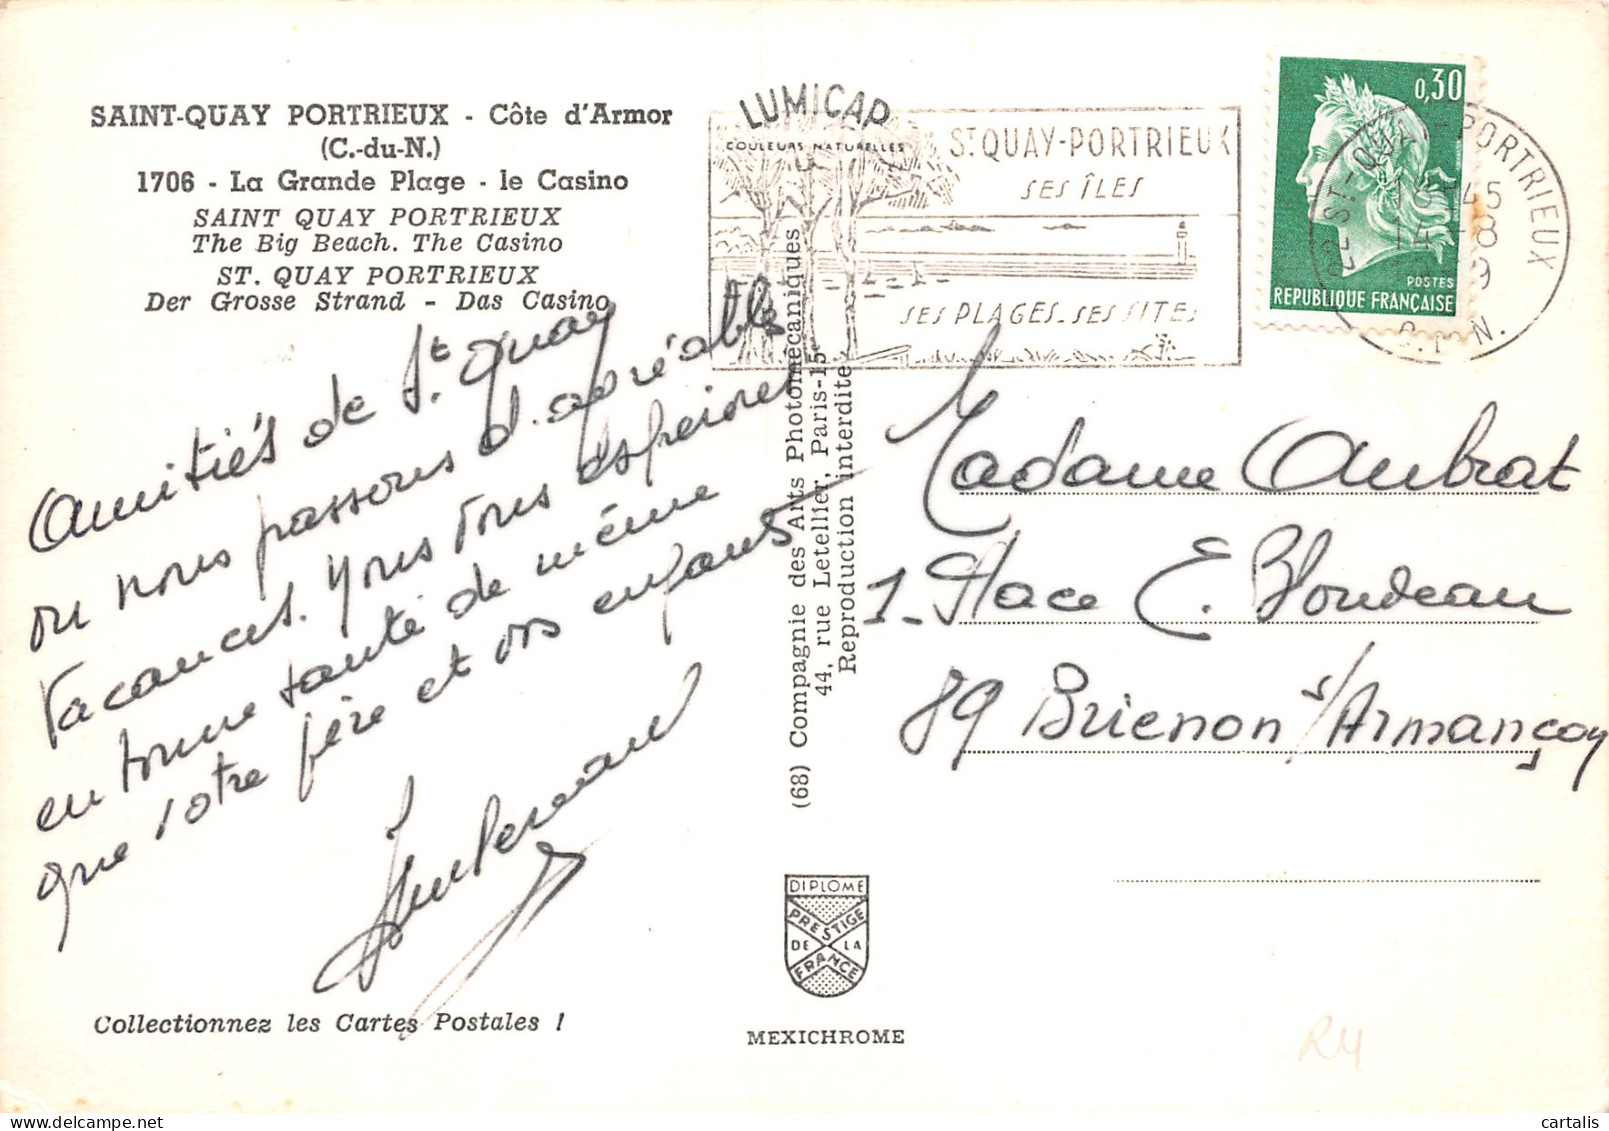 SAINT-QUAY PORTRIEUX - Côte d'Armor
(C.-du-N.)
1706 - La Grande Plage - le Casino
SAINT QUAY PORTRIEUX
The Big Beach. The Casino
ST. QUAY PORTRIEUX
Der Grosse Strand - Das Casino
Amitiés de St. Quay
ou nous passons d'agréables
vacances. Nous vous espérons
en bonne santé de même
que votre père et vos enfants
Collectionnez les Cartes Postales !
LUMICAP
COULEURS NATURELLES
(68) Compagnie des Arts Photomécaniques
44, rue Letellier, Paris-15e
Reproduction interdite
DIPLOME
PRESTIGE
DE LA
FRANCE
MEXICHROME
ST QUAY-PORTRIEUX
SES ÎLES
SES PLAGES - SES SITES
0,30
POSTES
REPUBLIQUE FRANÇAISE
22 ST-QUAY-PORTRIEUX
18H45
14-8
9
C. D N.
Madame Aubrat
1 - Place E. Blondeau
89 Brienon s/Armançon
R4